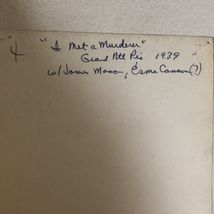 "I Met a Murderer"
Grand Ntl Pic 1939
w/ James Mason, Esme Cannon (?)